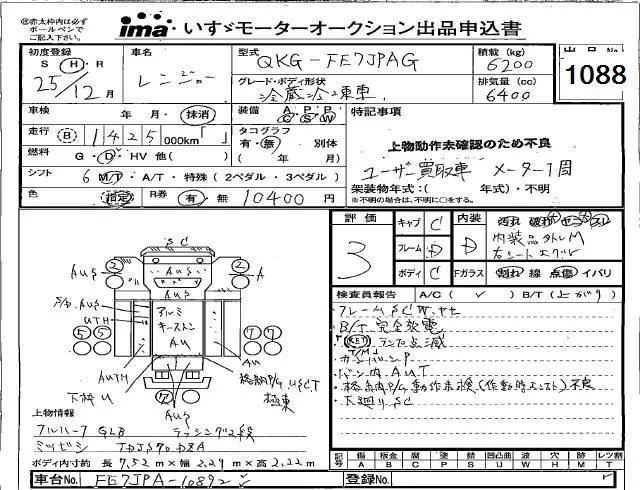 ㊟赤太枠内は必ず
ボールペンで
ご記入下さい。
ima いすゞモーターオークション出品申込書
初度登録
S H・R
25/12月
車名
レンジャー
型式
QKG-FE7JPAG
グレード・ボディ形状
冷蔵冷凍車
積載(kg)
6200
排気量(cc)
6400
出品No.
1088
車検
年 月・抹消
装備 A・P・P
C S W
走行 B 1425 000km「 」
タコグラフ
有・無 別体
( 年 月)
燃料 G・D・HV 他( )
シフト 6 M/T・A/T・特殊(2ペダル・3ペダル)
色 指定 R券 有・無 10400円
特記事項
上物動作未確認のため不良
ユーザー買取車 メーター1周
架装物年式:( 年式)・不明
※不明の場合は、不明に〇をする。
評価
3
キャブ C
フレーム D
ボディ C
内装
D
内装品外しM
右シートエグレ
Fガラス 割れ 線 点傷 イバリ
検査員報告 A/C( ✓ ) B/T(上がり)
・フレームSCWサビ
・B/T完全放電
・KEYランプ点滅
T/M
・カンバンP
・バン内AUT
・格納P/G動作未検(作動時エンスト)不良
・下廻りSC
SC
AUS
AUS
AUS
A
2
2
アルミ
キーストン
AU
UTH
AUTH
5 5
7 7
下枠U
AUS
格納P/G USCT
極東
上物情報
フルハーフ GLB ラッシング2段
ミツビシ TDJS70D8A
ボディ内寸約 長 7.52m×幅 2.29m×高 2.22m
記号 傷 板金 腐 塗 錆 凹凸曲 波 補 穴 跡 レツ割
A B C P S U W H X M T
車台No. FE7JPA-10892
登録No.